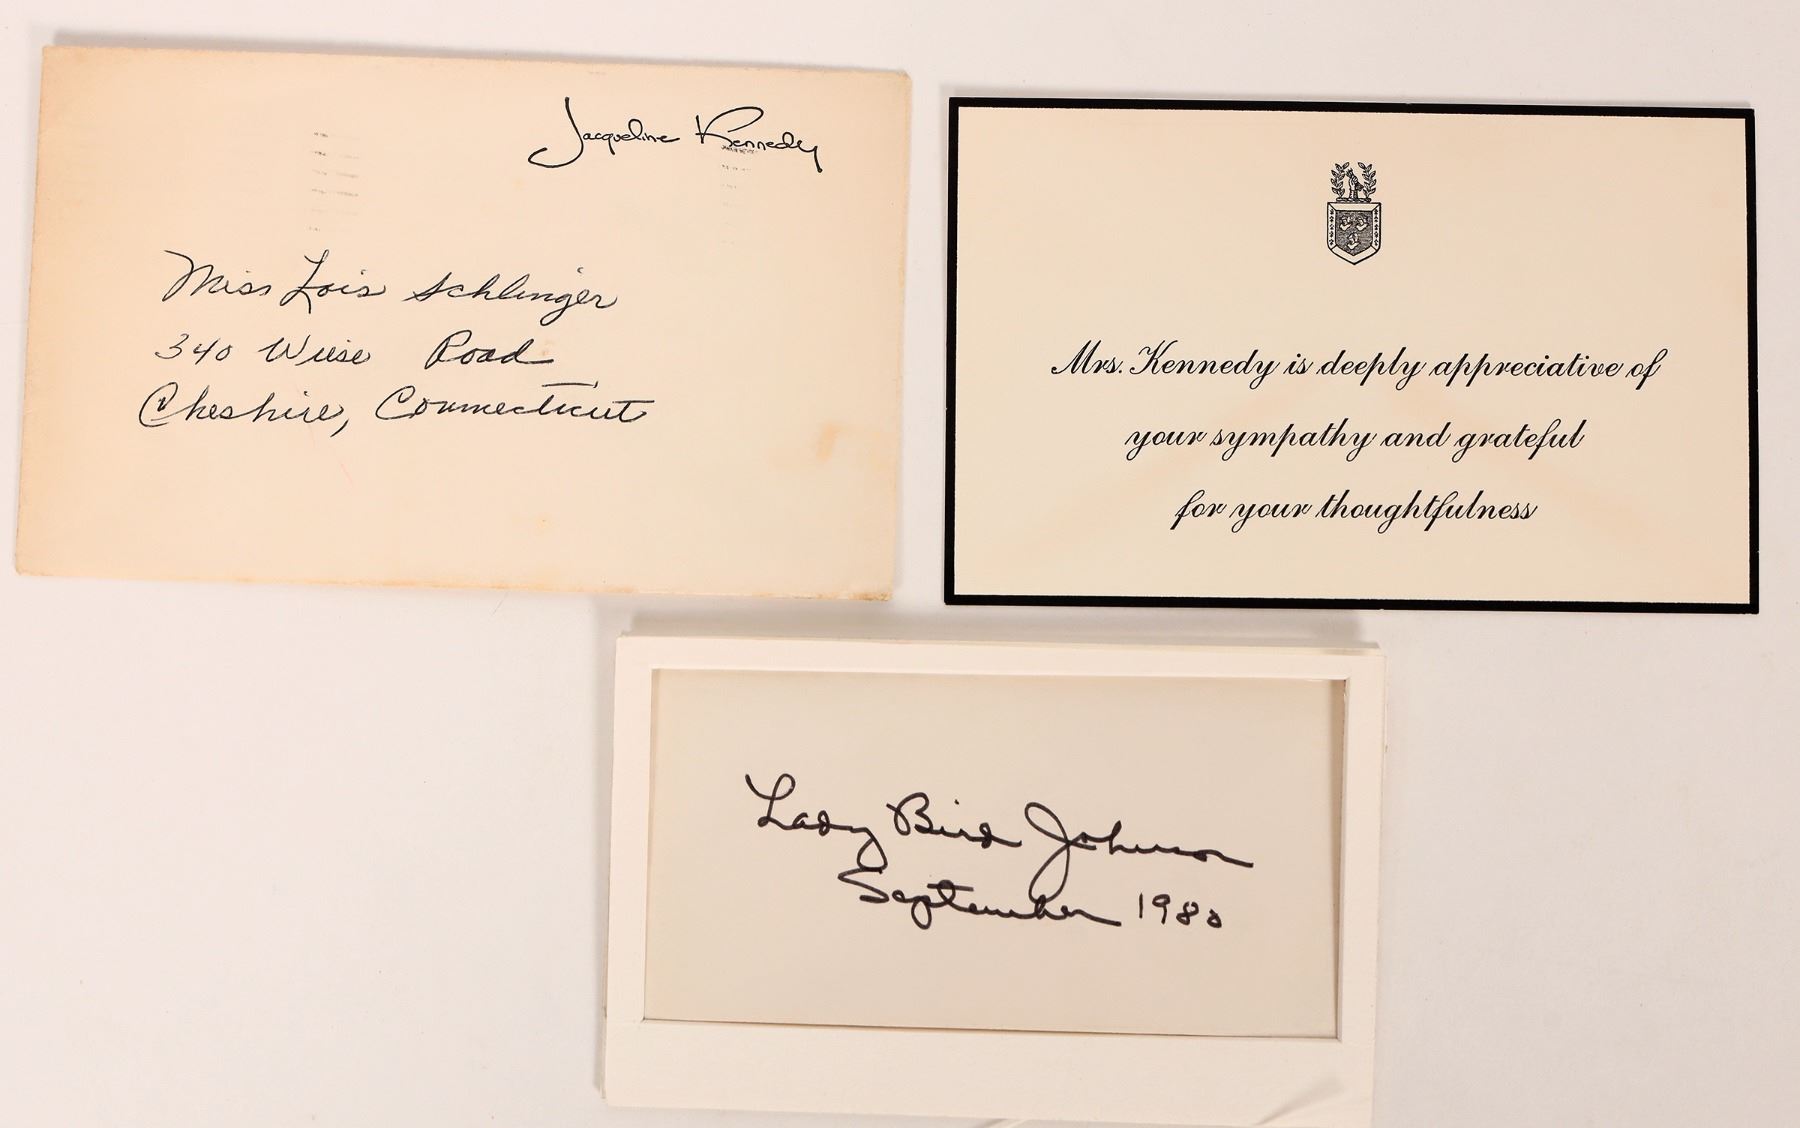 Jacqueline Kennedy
Miss Lois Schlinger
340 Wiese Road
Cheshire, Connecticut
Mrs. Kennedy is deeply appreciative of
your sympathy and grateful
for your thoughtfulness
Lady Bird Johnson
September 1980